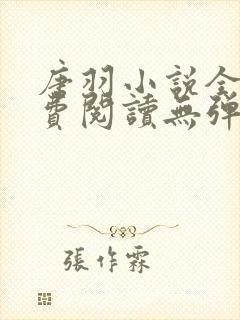 唐羽小說全
費閱讀無彈
張作霖